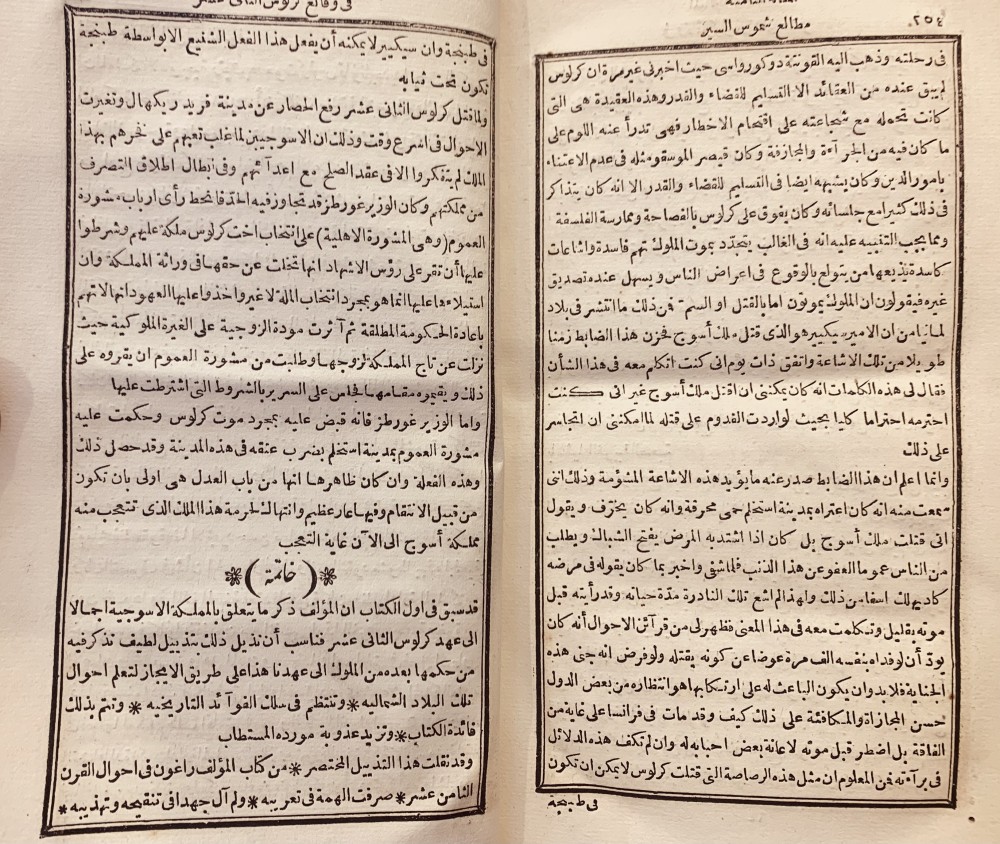 ٢٥٤
مطالع شموس السير
فى رحلته وذهب اليه القونتة دوكوروامى حيث اخبرنى غير مرة ان كرلوس
لم يبق عنده من العقائد الا التسليم للقضاء والقدر وهذه العقيدة هى التى
كانت تحمله مع شجاعته على اقتحام الاخطار فهى تدرأ عنه اللوم على
ما كان فيه من الجراءة والمجازفة وكان قيصر الموسقو مثله فى عدم الاعتناء
بامور الدين وكان يشبهه ايضا فى التسليم للقضاء والقدر الا انه كان يتذاكر
فى ذلك كثيرا مع جلسائه وكان يفوق على كرلوس بالفصاحة وممارسة الفلسفة
ومما يجب التنبيه عليه انه فى الغالب يتجدّد بموت الملوك تهم فاسدة واشاعات
كاسدة يذيعها من يتولع بالوقوع فى اعراض الناس ويسهل عنده تصديق
غيره فيقولون ان الملوك يموتون اما بالقتل او السم فمن ذلك ما انتشر فى بلاد
لمانيا من ان الامير سيكيير هو الذى قتل ملك أسوج فحزن هذا الضابط زمنا
طويلا من تلك الاشاعة واتفق ذات يوم انى كنت اتكلم معه فى هذا الشأن
فقال لى هذه الكلمات انه كان يمكننى ان اقتل ملك أسوج غير انى كنت
احترمه احتراما كليا بحيث لو اردت القدوم على قتله لما امكننى ان اتجاسر
على ذلك
وانما اعلم ان هذا الضابط صدر عنه ما يؤيد هذه الاشاعة المشؤمة وذلك انى
سمعت منه انه كان اعتراه بمدينة استخلم حمى محرقة وانه كان يخترف ويقول
انى قتلت ملك أسوج بل كان اذا اشتد به المرض يفتح الشباك ويطلب
من الناس عموما العفو عن هذا الذنب فلما شفى واخبر بما كان يقوله فى مرضه
كاد يهلك اسفا من ذلك ولهذا لم اشع تلك النادرة مدّة حياته وقد رأيته قبل
موته بقليل وتكلمت معه فى هذا المعنى فظهر لى من قرآئن الاحوال أنه كان
يودّ أن لو فداه بنفسه الف مرة عوضا عن كونه يقتله ولو فرض انه جنى هذه
الجناية فلا بد وان يكون الباعث له على ارتكابها هو انتظاره من بعض الدول
حسن المجازاة والمكافئة على ذلك كيف وقد مات فى فرانسا على غاية من
الفاقة بل اضطر قبل موته لاعانة بعض احبابه له وان لم تكف هذه الدلائل
فى برآءته فمن المعلوم ان مثل هذه الرصاصة التى قتلت كرلوس لا يمكن ان تكون
فى طبنجة
فى وقائع كرلوس الثانى عشر
فى طبنجة وان سيكيير لا يمكنه أن يفعل هذا الفعل الشنيع الا بواسطة طبنجة
تكون تحت ثيابه
ولما قتل كرلوس الثانى عشر رفع الحصار عن مدينة فريدريكهال وتغيرت
الاحوال فى اسرع وقت وذلك ان الاسوجيين لما غلب تعبهم على فخرهم بهذا
الملك لم يتفكروا الا فى عقد الصلح مع اعدآئهم وفى ابطال اطلاق التصرف
من مملكتهم وكان الوزير غورطز قد تجاوز فيه الحدّ فانحط رأى ارباب مشورة
العموم (وهى المشورة الاهلية) على انتخاب اخت كرلوس ملكة عليهم وشرطوا
عليها أن تقر على رؤس الاشهاد انها تخلت عن حقها فى وراثة المملكة وان
استيلاءها عليها انما هو بمجرد انتخاب الملة لا غير واخذوا عليها العهود انها لا تهم
باعادة الحكومة المطلقة ثم آثرت مودة الزوجية على الغيرة الملوكية حيث
نزلت عن تاج المملكة لزوجها وطلبت من مشورة العموم ان يقروه على
ذلك ويقيموه مقامها فجلس على السرير بالشروط التى اشترطت عليها
واما الوزير غورطز فانه قبض عليه بمجرد موت كرلوس وحكمت عليه
مشورة العموم بمدينة استخلم بضرب عنقه فى هذه المدينة وقد حصل ذلك
وهذه الفعلة وان كان ظاهرها انها من باب العدل هى اولى بان تكون
من قبيل الانتقام وفيها عار عظيم وانتهاك لحرمة هذا الملك الذى تتعجب منه
مملكة أسوج الى الآن غاية التعجب
(خاتمة)
قد سبق فى اول الكتاب ان المؤلف ذكر ما يتعلق بالمملكة الاسوجية اجمالا
الى عهد كرلوس الثانى عشر فناسب أن نذيل ذلك بتذييل لطيف نذكر فيه
من حكمها بعده من الملوك الى عهدنا هذا على طريق الايجاز لتعلم احوال
تلك البلاد الشماليه * وتنتظم فى سلك الفوآئد التاريخيه * وتتم بذلك
فائدة الكتاب * وتزيد عذوبة مورده المستطاب
وقد نقلت هذا التذييل المختصر * من كتاب المؤلف راغون فى احوال القرن
الثامن عشر * صرفت الهمة فى تعريبه * ولم آل جهدا فى تنقيحه وتهذيبه *